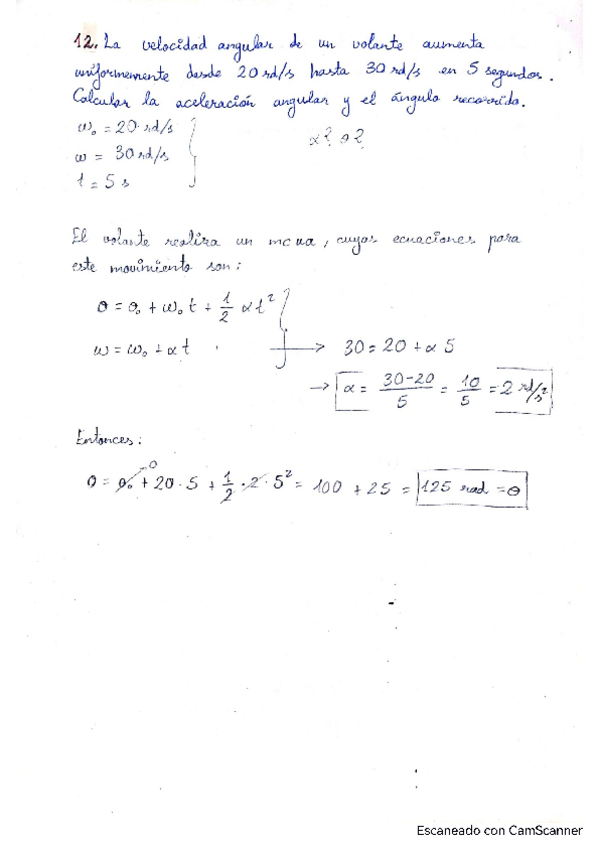 12. La velocidad angular de un volante aumenta
uniformemente desde 20 rd/s hasta 30 rd/s en 5 segundos.
Calcular la aceleración angular y el ángulo recorrido.
ω₀ = 20 rd/s
α? θ?
ω = 30 rd/s
t = 5 s
El volante realiza un mcua, cuyas ecuaciones para
este movimiento son:
θ = θ₀ + ω₀ t + 1/2 α t²
ω = ω₀ + α t → 30 = 20 + α 5
→ α = 30-20/5 = 10/5 = 2 rd/s²
Entonces:
θ = θ₀ + 20 · 5 + 1/2 · 2 · 5² = 100 + 25 = 125 rad = θ
Escaneado con CamScanner